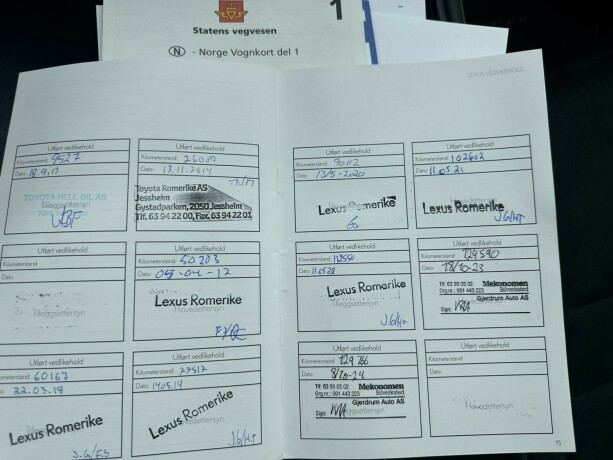 Statens vegvesen
1
N - Norge Vognkort del 1
Utført vedlikehold
Kilometerstand: 9527
Dato: 18.9.13
Tilleggsettersyn
TOYOTA HELL BIL AS
Utført vedlikehold
Kilometerstand: 26000
Dato: 13.11.2014
Toyota Romerike AS
Jessheim
Gystadparken, 2050 Jessheim
Tlf. 63 94 22 00, Fax. 63 94 22 01
Utført vedlikehold
Kilometerstand:
Dato:
Tilleggsettersyn
Utført vedlikehold
Kilometerstand: 50203
Dato:
Lexus Romerike
Hovedettersyn
Utført vedlikehold
Kilometerstand: 60167
Dato: 22.03.18
Lexus Romerike
J.G/F.S
Utført vedlikehold
Kilometerstand:
Dato: 14.05.19
Lexus Romerike
J.G/HT
LEXUS VEDLIKEHOLD
Utført vedlikehold
Kilometerstand: 90112
Dato: 13/5-2020
Lexus Romerike
Utført vedlikehold
Kilometerstand: 102602
Dato: 11.05.21
Lexus Romerike
J.G/HT
Utført vedlikehold
Kilometerstand:
Dato:
Lexus Romerike
Tilleggsettersyn
J.G/HT
Utført vedlikehold
Kilometerstand: 124590
Dato: 18/10-23
Tlf: 63 99 05 02 Mekonomen
Org.nr.: 991 443 223 Bilverksted
Gjerdrum Auto AS
Sign:
Utført vedlikehold
Kilometerstand: 129 766
Dato: 8/10-24
Tlf: 63 99 05 02 Mekonomen
Org.nr.: 991 443 223 Bilverksted
Gjerdrum Auto AS
Sign:
Tilleggsettersyn
Utført vedlikehold
Kilometerstand:
Dato:
Hovedettersyn
15